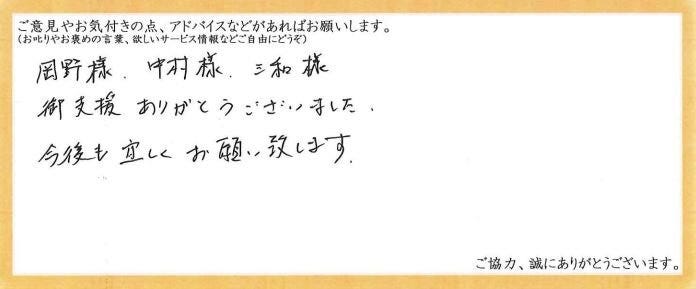 ご意見やお気付きの点、アドバイスなどがあればお願いします。
(お叱りやお褒めの言葉、欲しいサービス情報などご自由にどうぞ)
岡野様、中村様、三和様
御支援ありがとうございました。
今後も宜しくお願い致します。
ご協力、誠にありがとうございます。